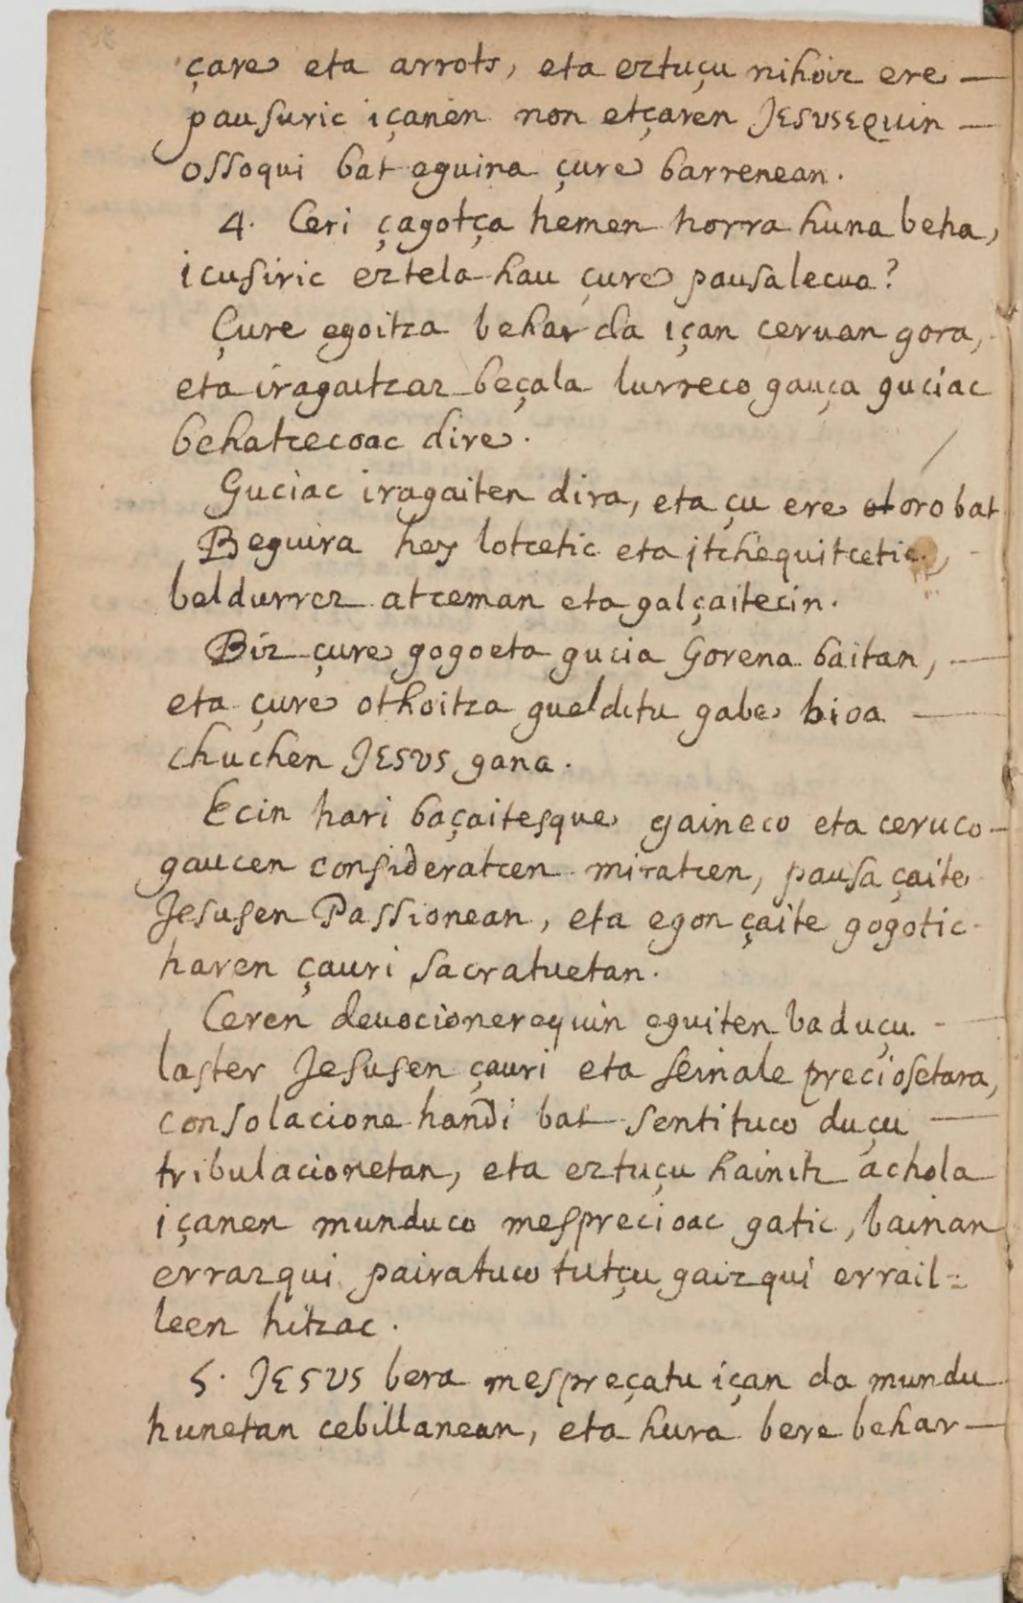 çare eta arrots, eta eztuçu nihoiz ere —
pausuric içanen non etçaren JESUSEQuin —
ossoqui bat eguina çure barrenean.
4. Ceri çagotça hemen horra huna beha,
icusiric eztela hau çure pausalecua?
Çure egoitza behar da içan ceruan gora,
eta iragaitzaz beçala lurreco gauça guciac
behatcecoac dire.
Guciac iragaiten dira, eta çu ere orobat
Beguira hey lotcetic eta jtchequitcetic,
beldurrez atceman eta galçaitecin.
Biz çure gogoeta gucia Gorena baitan, —
eta çure othoitza gueldctu gabe bioa —
chuchen JESUS gana.
Ecin hari baçaitesque gaineco eta ceruco-
gaucen consideratcen miratcen, pausa çaite
Jesusen Passionean, eta egon çaite gogotic
haren çauri sacratuetan.
Ceren deuocionerequin eguiten baduçu -
laster Jesusen çauri eta seinale preciosetara,
consolacione handi bat sentituco duçu —
tribulacionetan, eta eztuçu hainitz achola
içanen munduco mesprecioac gatic, bainan
errazqui pairatuco tutçu gaizqui errail=
leen hitzac.
5. JESUS bera mespreçatu içan da mundu
hunetan cebillanean, eta hura bere behar—